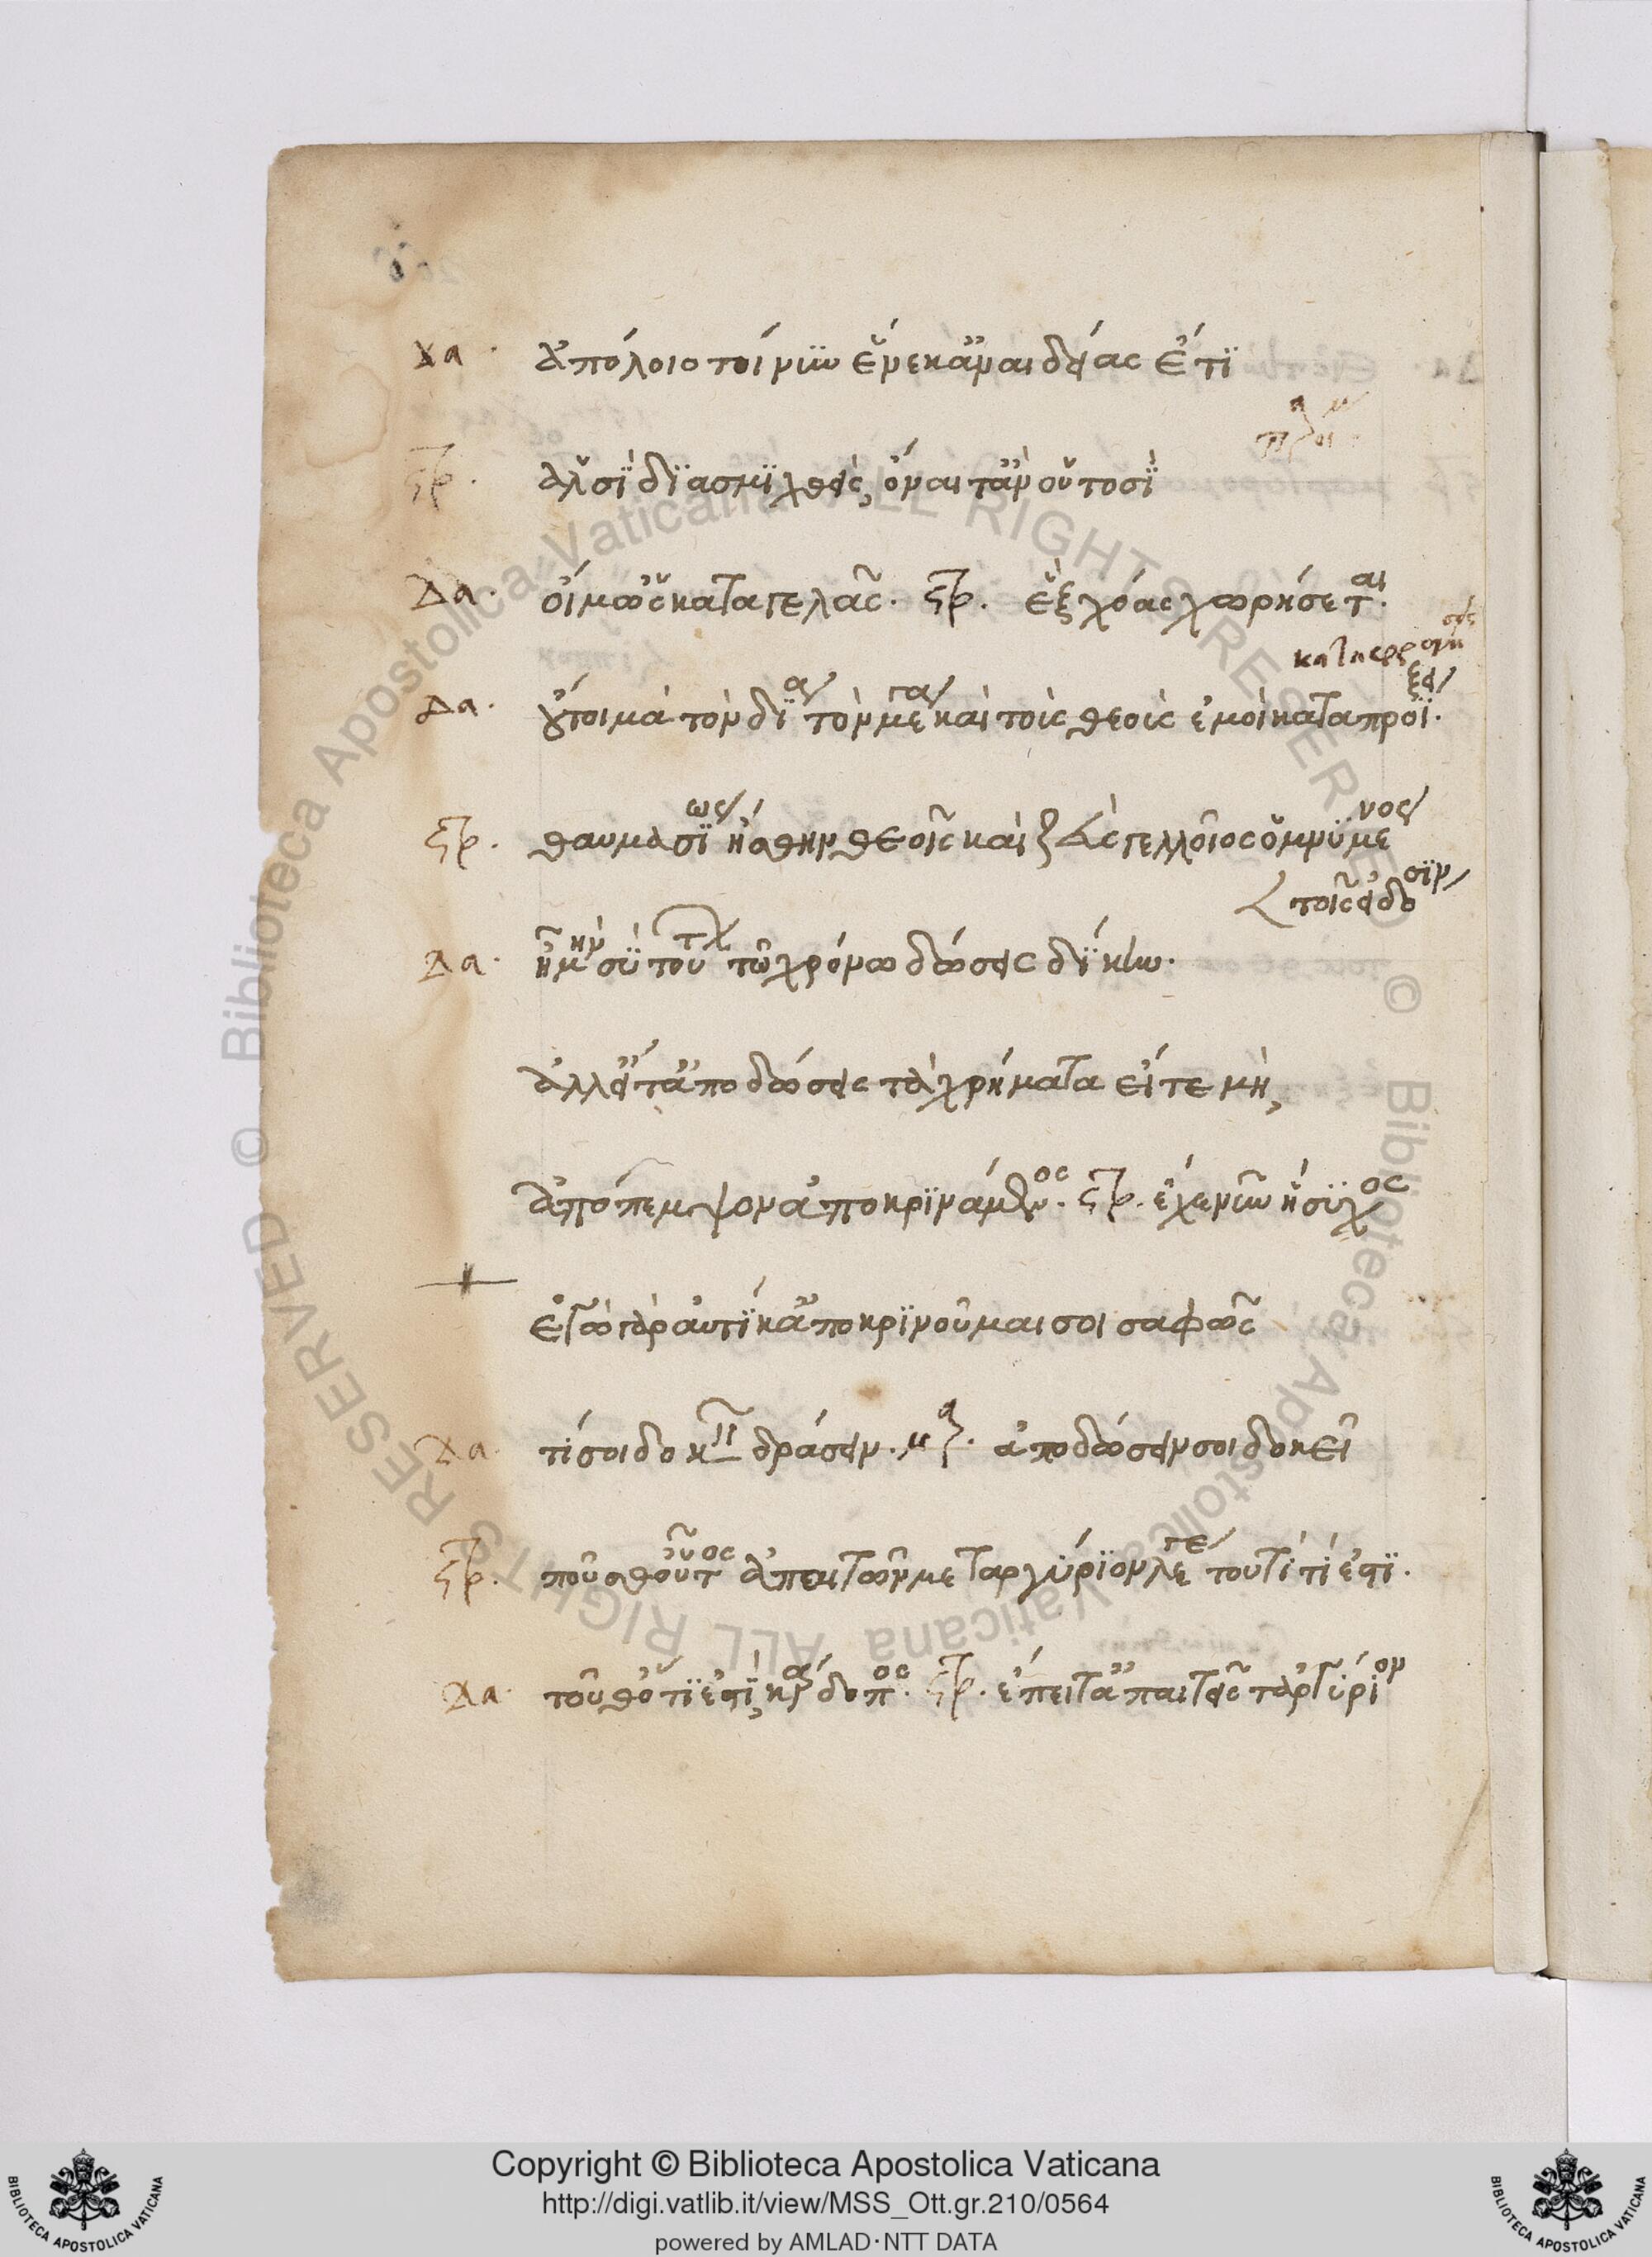 Χα. ἀπόλοιο τοίνυν ἕνεκ' ἀναιδείας ἔτι
Στρ. ἁλσὶ διασμηχθεὶς, ὄναιτ' ἂν οὑτοσί
Δα. οἴμ' ὡς καταγελᾶς. Στρ. ἓξ χόας χωρήσεται.
Δα. οὔτοι μὰ τὸν δία τὸν μέγαν καὶ τοὺς θεοὺς ἐμοῦ καταπροίξει.
Στρ. θαυμασίως ἥσθην θεοῖς καὶ Ζεὺς γελοῖος ὀμνύμενος
τοῖς εἰδόσιν
Δα. ἦ μὴν σὺ τούτων τῷ χρόνῳ δώσεις δίκην.
ἀλλ' εἴτ' ἀποδώσεις τὰ χρήματα εἴτε μή,
ἀπόπεμψον ἀποκρινάμενος. Στρ. ἔχε νῦν ἥσυχος
ἐγὼ γὰρ αὐτίκ' ἀποκρινοῦμαί σοι σαφῶς
Χα. τί σοι δοκεῖ δράσειν. Μα. ἀποδώσειν σοι δοκεῖ
Στρ. ποῦ 'σθ' οὗτος ἁπαιτῶν με τἀργύριον λέγε τουτὶ τί ἐστι.
Δα. τοῦθ' ὅ τι ἐστὶ, κάρδοπος. Στρ. ἔπειτ' ἀπαιτεῖς τἀργύριον
Copyright © Biblioteca Apostolica Vaticana
http://digi.vatlib.it/view/MSS_Ott.gr.210/0564
powered by AMLAD·NTT DATA